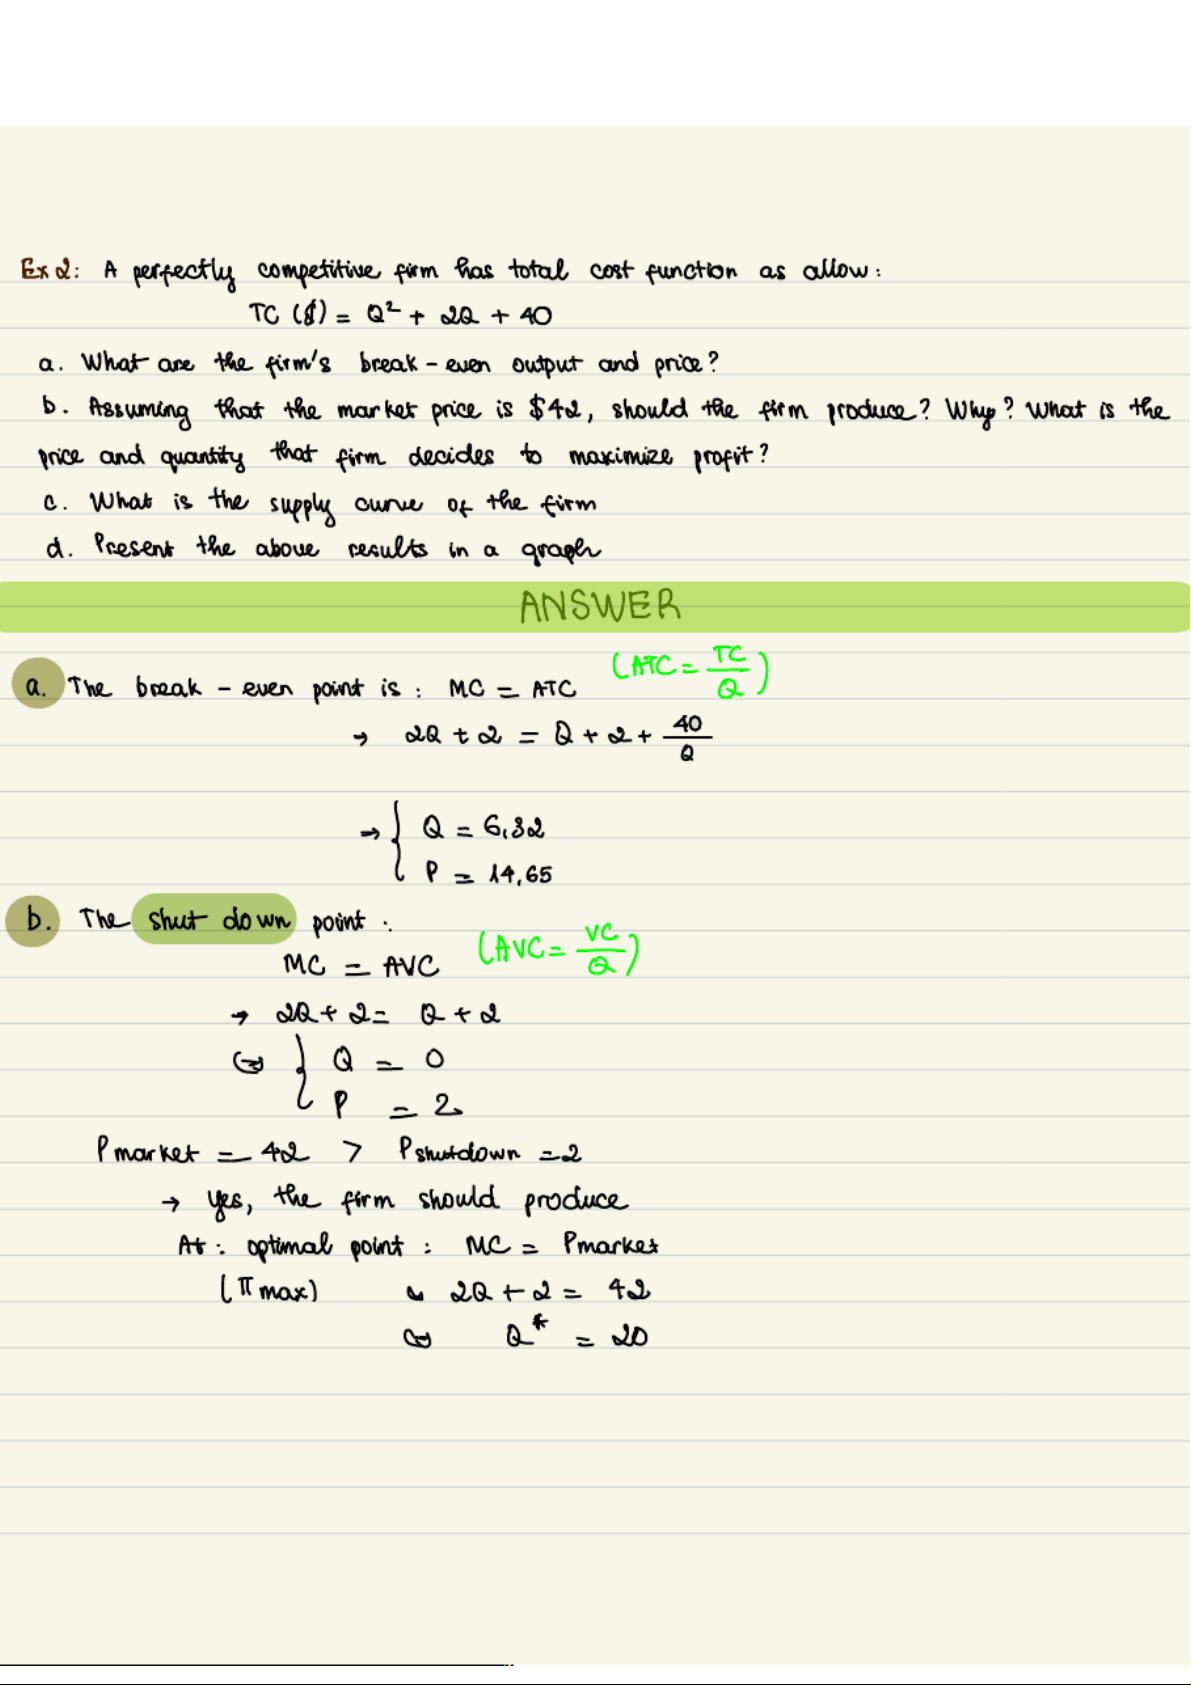 Ex 2: A perfectly competitive firm has total cost function as allow:
TC ($) = Q² + 2Q + 40
a. What are the firm's break - even output and price?
b. Assuming that the market price is $42, should the firm produce? Why? What is the
price and quantity that firm decides to maximize profit?
c. What is the supply curve of the firm
d. Present the above results in a graph
ANSWER
a. The break - even point is: MC = ATC (ATC = TC/Q)
→ 2Q + 2 = Q + 2 + 40/Q
⇒ { Q = 6,32
P = 14,65
b. The shut down point:
MC = AVC (AVC = VC/Q)
→ 2Q + 2 = Q + 2
⇔ { Q = 0
P = 2
P market = 42 > P shutdown = 2
→ yes, the firm should produce
At: optimal point: MC = Pmarket
(π max) 2Q + 2 = 42
⇔ Q* = 20